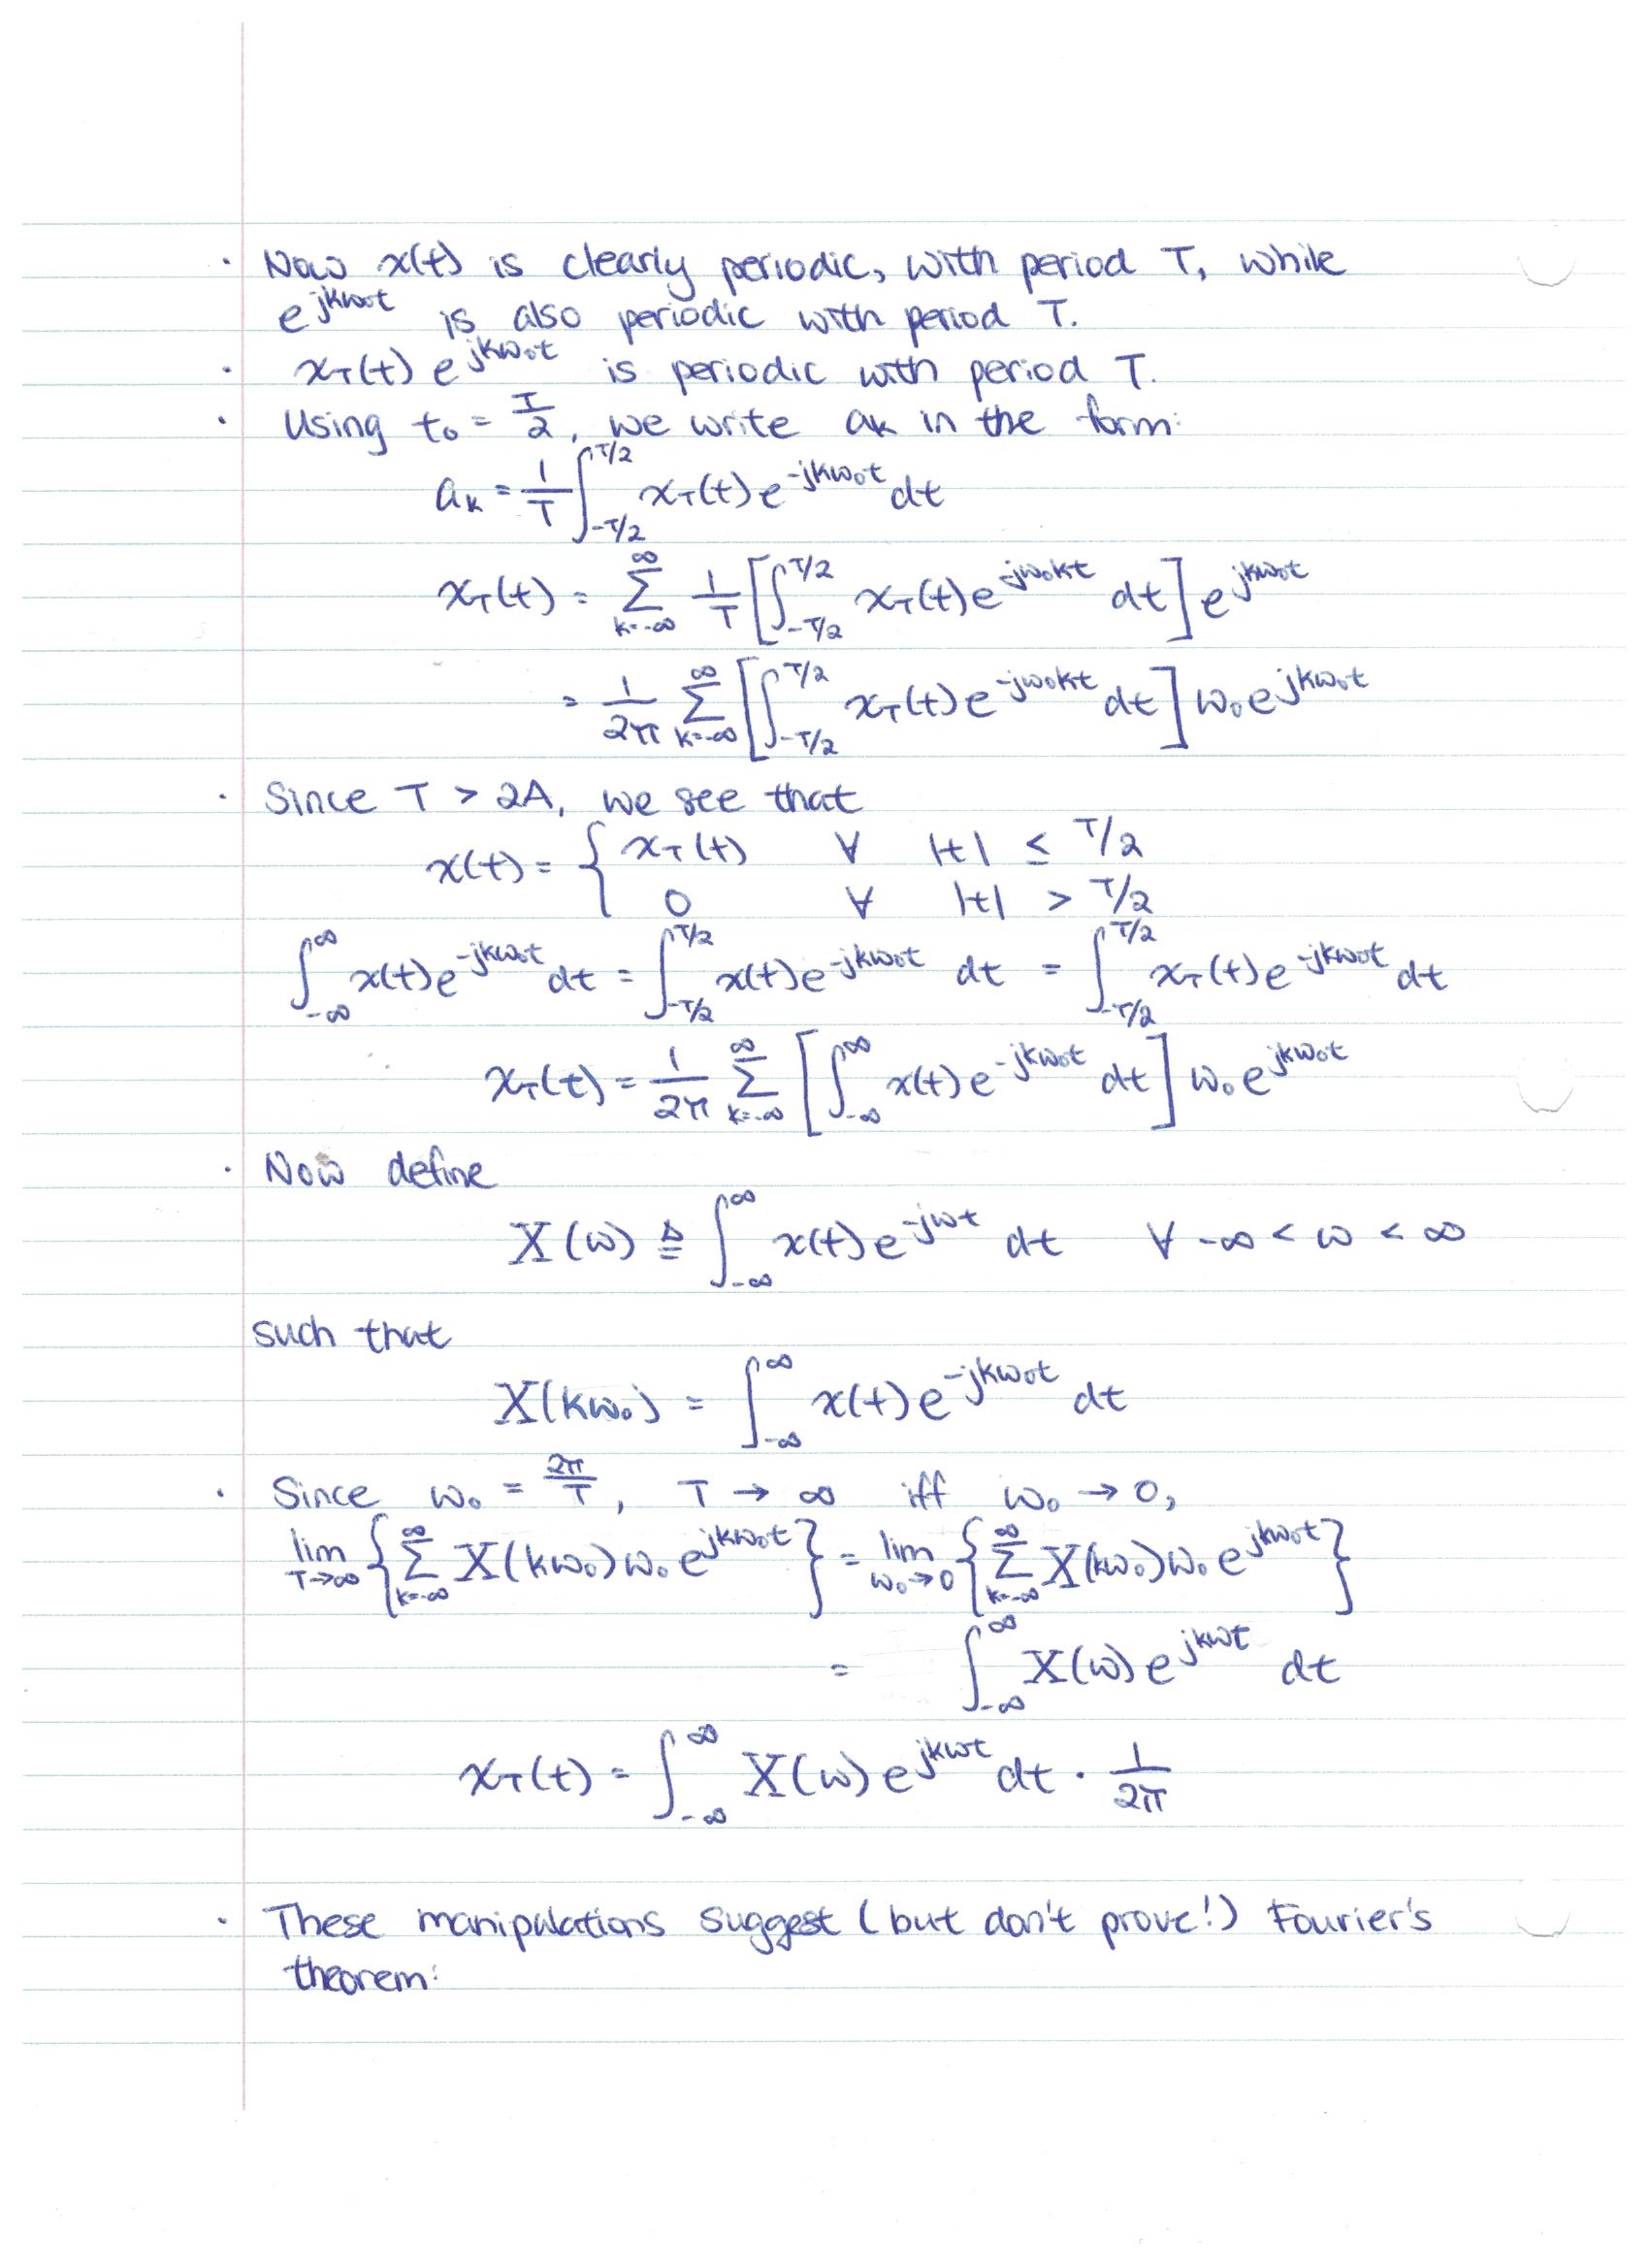 · Now x(t) is clearly periodic, with period T, while
e^{jkω₀t} is also periodic with period T.
· x_T(t) e^{jkω₀t} is periodic with period T.
· Using t₀ = T/2, we write a_k in the form:
a_k = 1/T ∫_{-T/2}^{T/2} x_T(t) e^{-jkω₀t} dt
x_T(t) = Σ_{k=-∞}^{∞} 1/T [∫_{-T/2}^{T/2} x_T(t) e^{-jω₀kt} dt] e^{jkω₀t}
= 1/2π Σ_{k=-∞}^{∞} [∫_{-T/2}^{T/2} x_T(t) e^{-jω₀kt} dt] ω₀ e^{jkω₀t}
· Since T > 2A, we see that
x(t) = { x_T(t) ∀ |t| ≤ T/2
0 ∀ |t| > T/2
∫_{-∞}^{∞} x(t) e^{-jkω₀t} dt = ∫_{-T/2}^{T/2} x(t) e^{-jkω₀t} dt = ∫_{-T/2}^{T/2} x_T(t) e^{-jkω₀t} dt
x_T(t) = 1/2π Σ_{k=-∞}^{∞} [∫_{-∞}^{∞} x(t) e^{-jkω₀t} dt] ω₀ e^{jkω₀t}
· Now define
X(ω) ≜ ∫_{-∞}^{∞} x(t) e^{-jωt} dt ∀ -∞ < ω < ∞
such that
X(kω₀) = ∫_{-∞}^{∞} x(t) e^{-jkω₀t} dt
· Since ω₀ = 2π/T, T → ∞ iff ω₀ → 0,
lim_{T→∞} {Σ_{k=-∞}^{∞} X(kω₀) ω₀ e^{jkω₀t}} = lim_{ω₀→0} {Σ_{k=-∞}^{∞} X(kω₀) ω₀ e^{jkω₀t}}
= ∫_{-∞}^{∞} X(ω) e^{jkωt} dt
x_T(t) = ∫_{-∞}^{∞} X(ω) e^{jkωt} dt · 1/2π
· These manipulations suggest (but don't prove!) Fourier's
theorem: